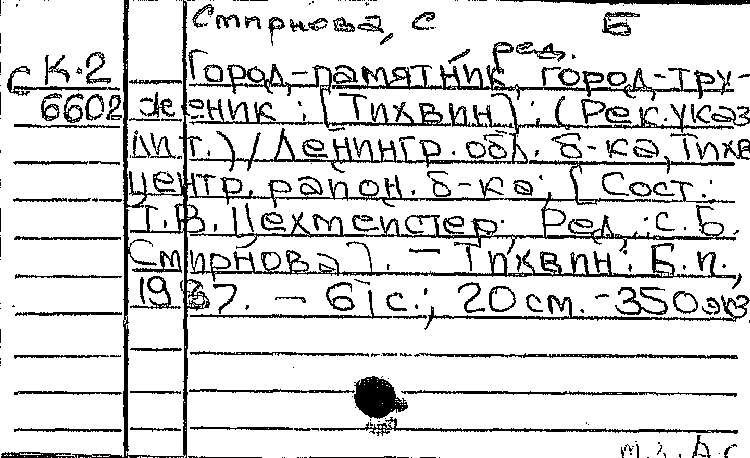 Смирнова, С Б
ред.
С К-2 Город-памятник, город-тру-
6602 женик : [Тихвин] : (Рек. указ
лит.) / Ленингр. обл. б-ка, Тихв
центр. район. б-ка; [Сост.:
Т.В. Цехмейстер; Ред.: С.Б.
Смирнова]. — Тихвин: Б.п.,
1987. — 61с.; 20 см. - 350 экз